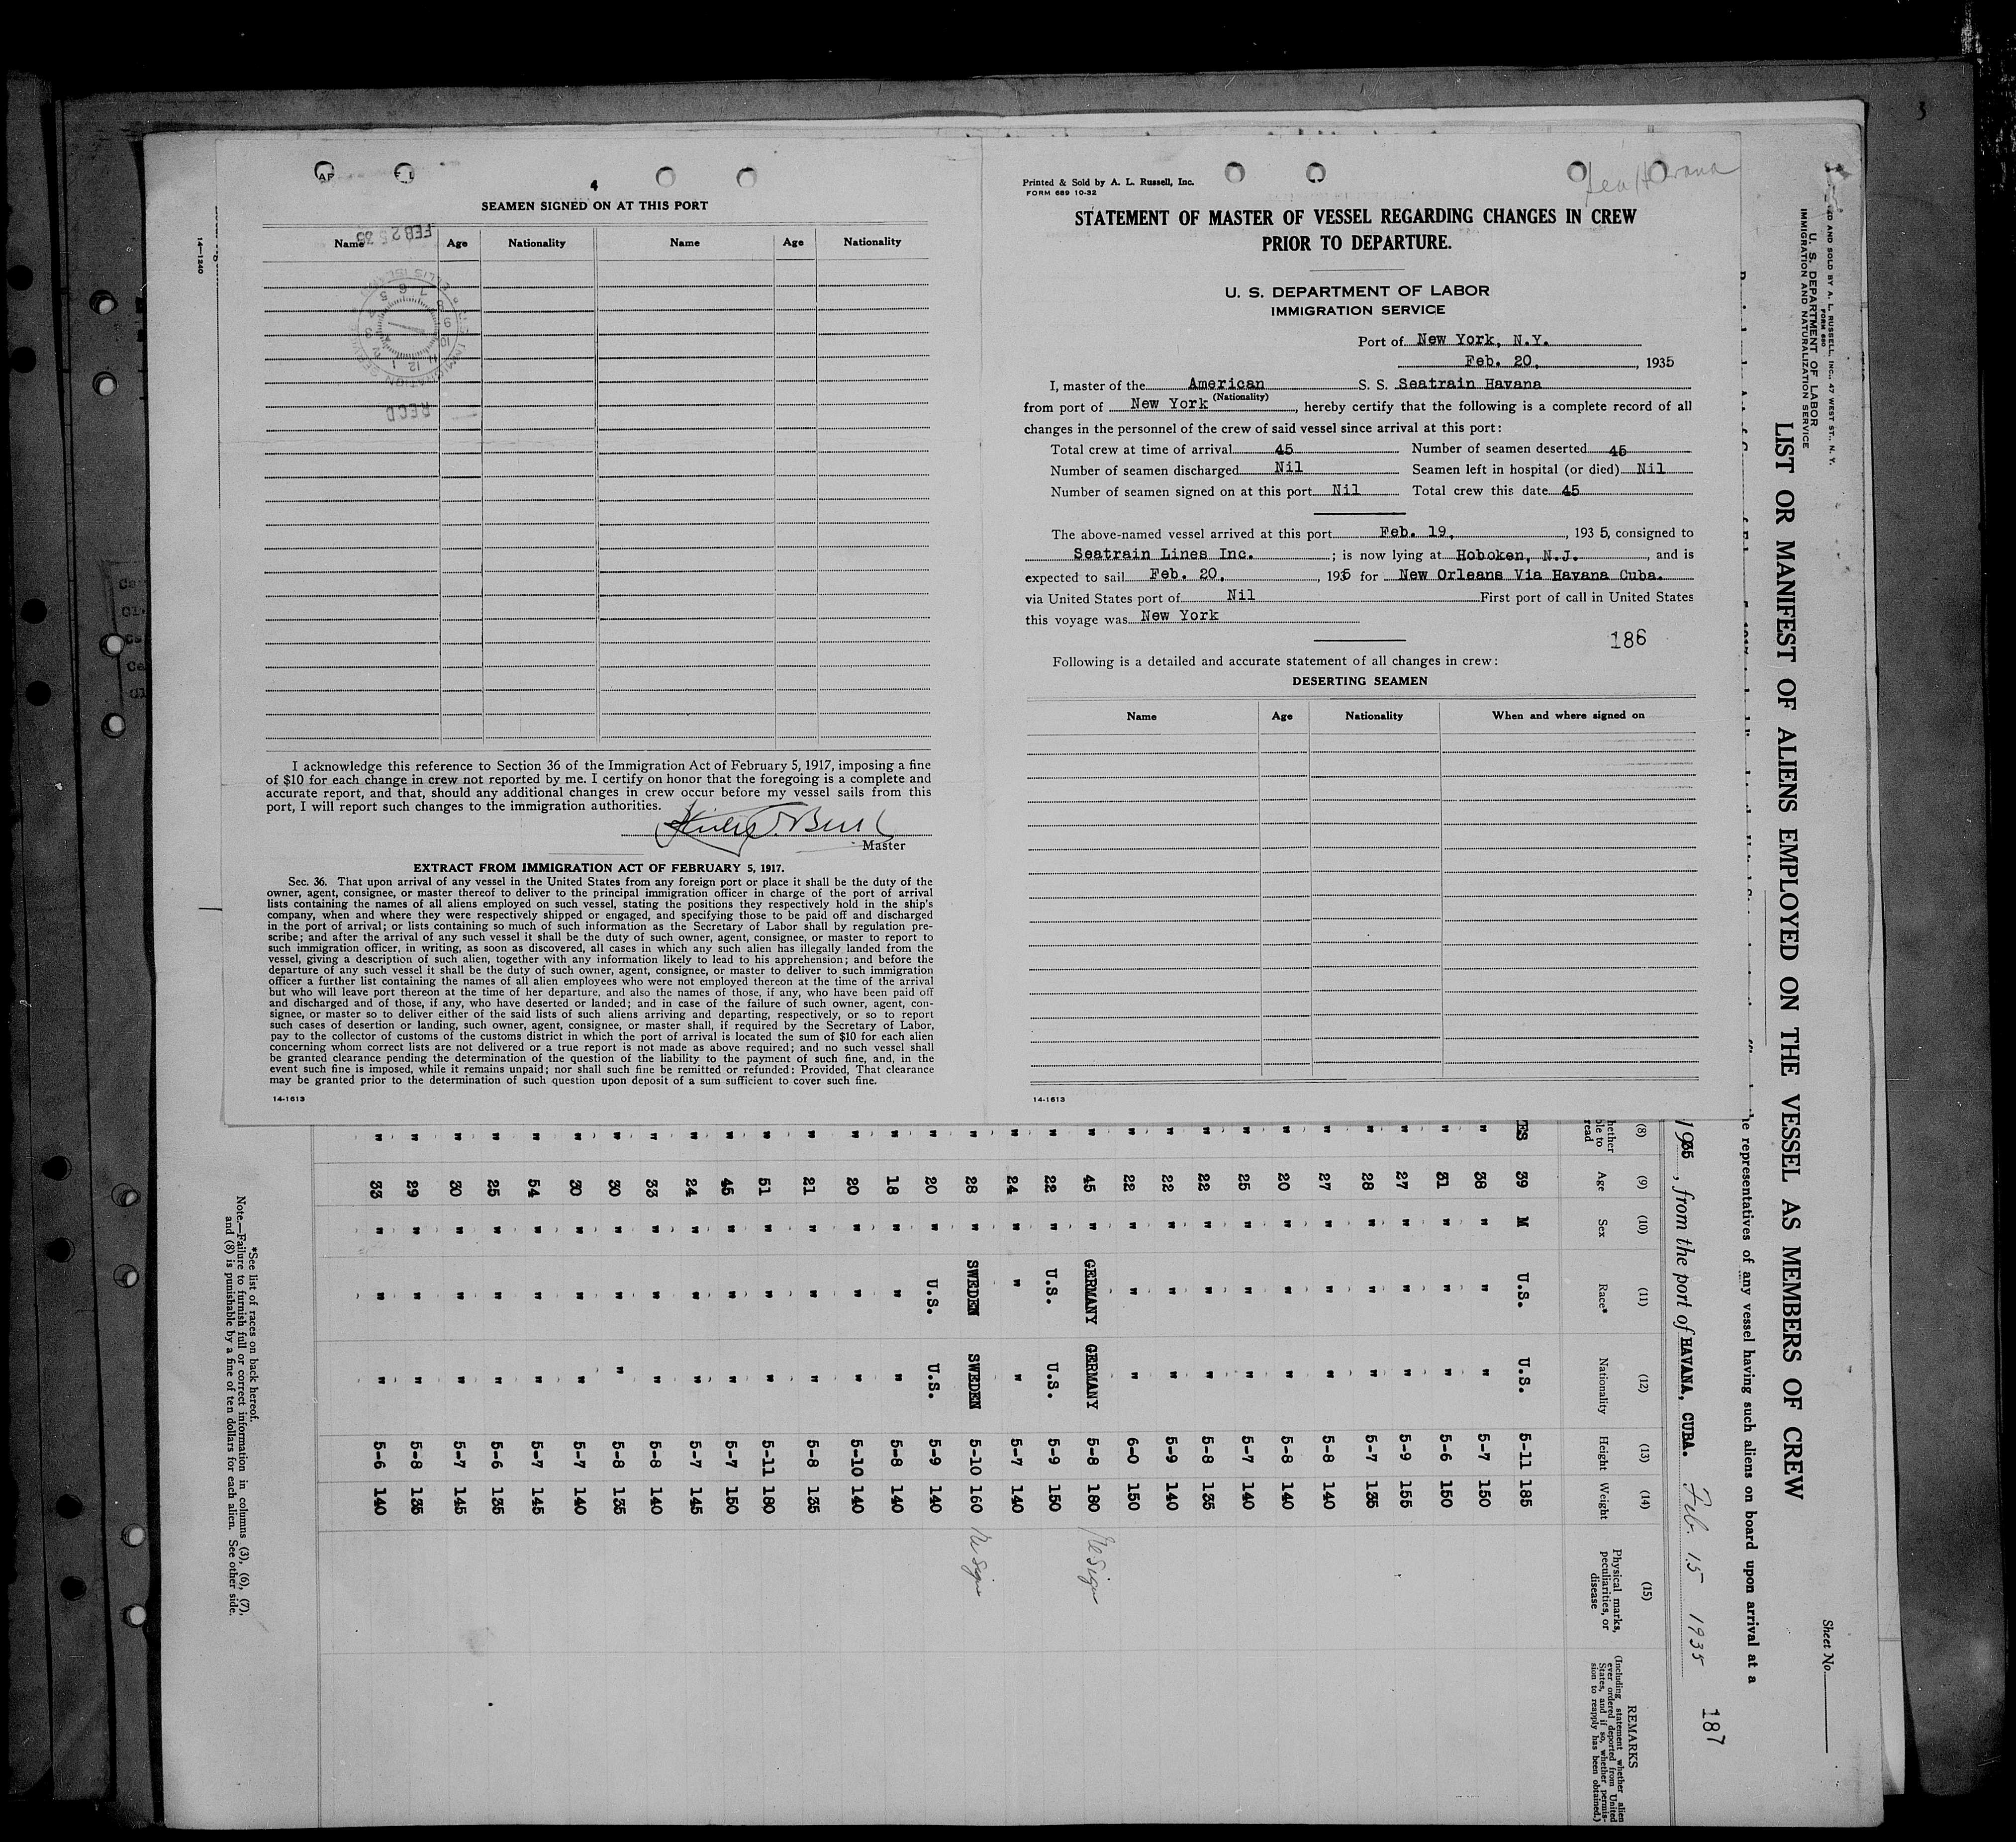 4
SEAMEN SIGNED ON AT THIS PORT
Name Age Nationality Name Age Nationality
FEB 25 35
RECD
14-1240
I acknowledge this reference to Section 36 of the Immigration Act of February 5, 1917, imposing a fine
of $10 for each change in crew not reported by me. I certify on honor that the foregoing is a complete and
accurate report, and that, should any additional changes in crew occur before my vessel sails from this
port, I will report such changes to the immigration authorities.
Master
EXTRACT FROM IMMIGRATION ACT OF FEBRUARY 5, 1917.
Sec. 36. That upon arrival of any vessel in the United States from any foreign port or place it shall be the duty of the
owner, agent, consignee, or master thereof to deliver to the principal immigration officer in charge of the port of arrival
lists containing the names of all aliens employed on such vessel, stating the positions they respectively hold in the ship's
company, when and where they were respectively shipped or engaged, and specifying those to be paid off and discharged
in the port of arrival; or lists containing so much of such information as the Secretary of Labor shall by regulation pre-
scribe; and after the arrival of any such vessel it shall be the duty of such owner, agent, consignee, or master to report to
such immigration officer, in writing, as soon as discovered, all cases in which any such alien has illegally landed from the
vessel, giving a description of such alien, together with any information likely to lead to his apprehension; and before the
departure of any such vessel it shall be the duty of such owner, agent, consignee, or master to deliver to such immigration
officer a further list containing the names of all alien employees who were not employed thereon at the time of the arrival
but who will leave port thereon at the time of her departure, and also the names of those, if any, who have been paid off
and discharged and of those, if any, who have deserted or landed; and in case of the failure of such owner, agent, con-
signee, or master so to deliver either of the said lists of such aliens arriving and departing, respectively, or so to report
such cases of desertion or landing, such owner, agent, consignee, or master shall, if required by the Secretary of Labor,
pay to the collector of customs of the customs district in which the port of arrival is located the sum of $10 for each alien
concerning whom correct lists are not delivered or a true report is not made as above required; and no such vessel shall
be granted clearance pending the determination of the question of the liability to the payment of such fine, and, in the
event such fine is imposed, while it remains unpaid; nor shall such fine be remitted or refunded: Provided, That clearance
may be granted prior to the determination of such question upon deposit of a sum sufficient to cover such fine.
14-1613
Printed & Sold by A. L. Russell, Inc.
FORM 689 10-32
STATEMENT OF MASTER OF VESSEL REGARDING CHANGES IN CREW
PRIOR TO DEPARTURE.
U. S. DEPARTMENT OF LABOR
IMMIGRATION SERVICE
Port of New York, N.Y.
Feb. 20, , 1935
I, master of the American S. S. Seatrain Havana
(Nationality)
from port of New York , hereby certify that the following is a complete record of all
changes in the personnel of the crew of said vessel since arrival at this port:
Total crew at time of arrival 45 Number of seamen deserted 45
Number of seamen discharged Nil Seamen left in hospital (or died) Nil
Number of seamen signed on at this port Nil Total crew this date 45
The above-named vessel arrived at this port Feb. 19, , 1935, consigned to
Seatrain Lines Inc. ; is now lying at Hoboken, N.J. , and is
expected to sail Feb. 20, , 1935 for New Orleans Via Havana Cuba.
via United States port of Nil First port of call in United States
this voyage was New York
186
Following is a detailed and accurate statement of all changes in crew:
DESERTING SEAMEN
Name Age Nationality When and where signed on
14-1613
Sheet No.
ED AND SOLD BY A. L. RUSSELL, INC., 47 WEST ST., N. Y.
FORM 680
U. S. DEPARTMENT OF LABOR
IMMIGRATION AND NATURALIZATION SERVICE
LIST OR MANIFEST OF ALIENS EMPLOYED ON THE VESSEL AS MEMBERS OF CREW
he representatives of any vessel having such aliens on board upon arrival at a
187
1935, from the port of HAVANA, CUBA. Feb. 15 1935
(8) (9) (10) (11) (12) (13) (14) (15) REMARKS
hether ble to read Age Sex Race* Nationality Height Weight Physical marks, peculiarities, or disease (Including statement whether alien ever ordered deported from United States, and if so, whether permission to reapply has been obtained.)
ES 39 M U.S. U.S. 5-11 185
" 38 " " " 5-7 150
" 31 " " " 5-6 150
" 27 " " " 5-9 155
" 28 " " " 5-7 135
" 27 " " " 5-8 140
" 20 " " " 5-8 140
" 25 " " " 5-7 140
" 22 " " " 5-8 135
" 22 " " " 5-9 140
" 22 " " " 6-0 150
" 45 " GERMANY GERMANY 5-8 180
" 22 " U.S. U.S. 5-9 150
" 24 " " " 5-7 140
" 28 " SWEDEN SWEDEN 5-10 160
" 20 " U.S. U.S. 5-9 140
" 18 " " " 5-8 140
" 20 " " " 5-10 140
" 21 " " " 5-8 135
" 51 " " " 5-11 180
" 45 " " " 5-7 150
" 24 " " " 5-7 145
" 33 " " " 5-8 140
" 30 " " " 5-8 135
" 30 " " " 5-7 140
" 54 " " " 5-7 145
" 25 " " " 5-6 135
" 30 " " " 5-7 145
" 29 " " " 5-8 135
" 33 " " " 5-6 140
*See list of races on back hereof.
Note.—Failure to furnish full or correct information in columns (3), (6), (7),
and (8) is punishable by a fine of ten dollars for each alien. See other side.